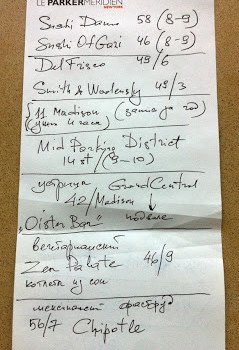 LE PARKER MERIDIEN
NEW YORK
Sushi Damo 58 (8-9)
Sushi Of Gari 46 (8-9)
Del Frisco 49/6
Smith & Wolensky 49/3
11 Madison (за год)
Mid Parking District
14 st / (9-10)
устрица Grand Central
42/Madison ↓
"Oister Bar"
вечтарианский
Zen Palate 46/9
котлета из сои
мексиканск фастфуд
56/7 Chipotle